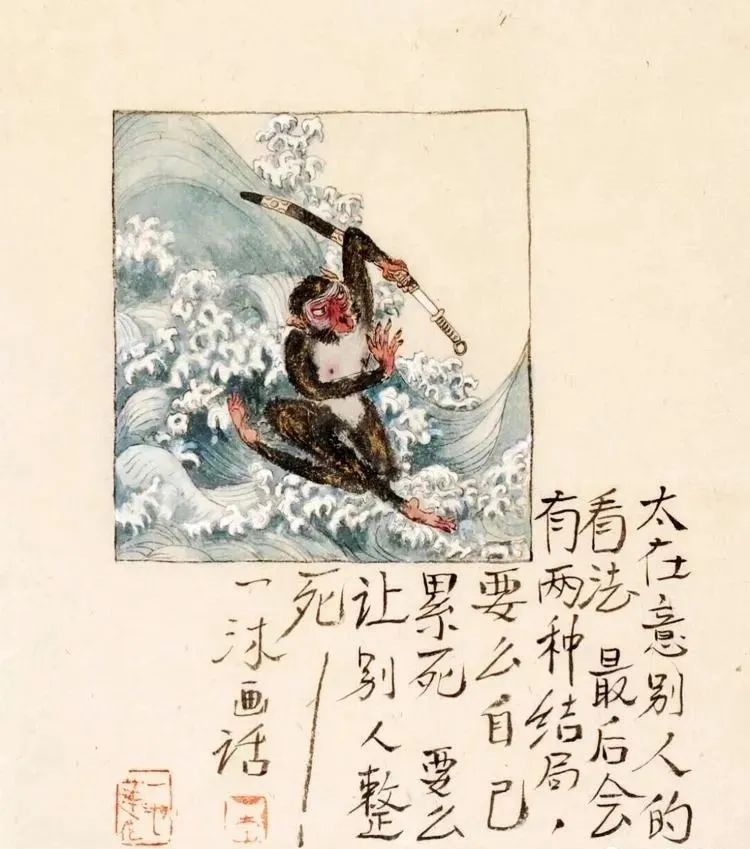 太在意别人的
看法 最后会
有两种结局，
要么自己
累死 要么
让别人整
死
一沐画话